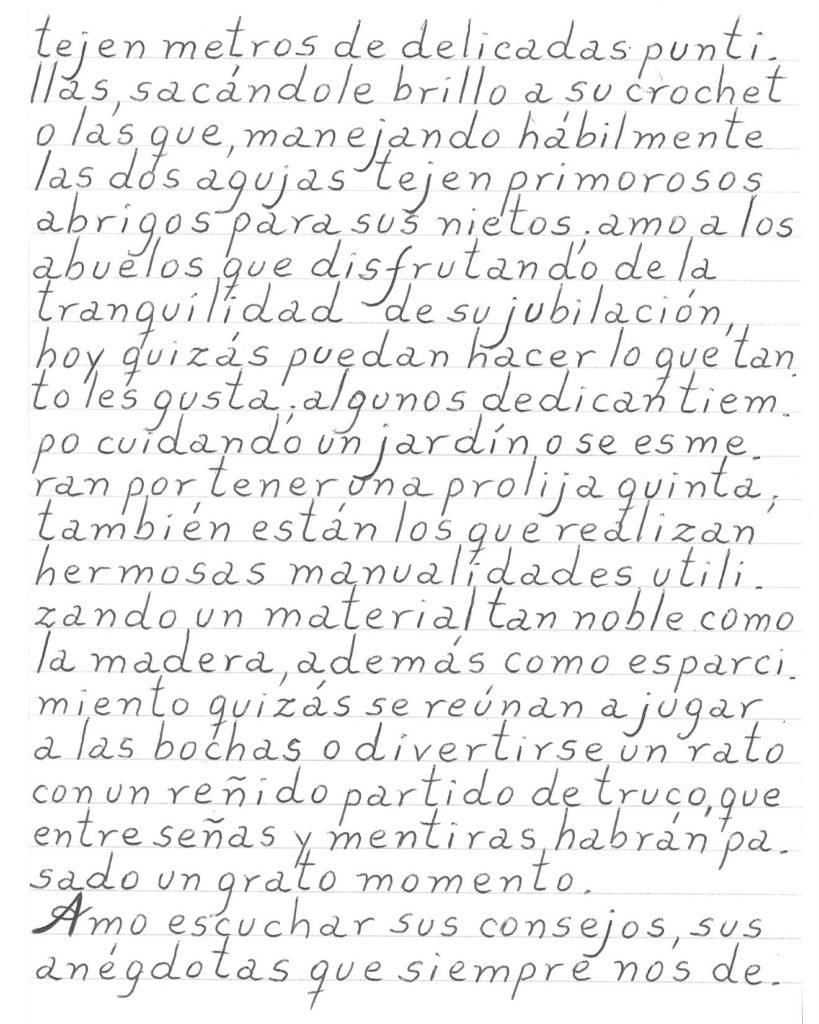 tejen metros de delicadas punti-
llas, sacándole brillo a su crochet
o las que, manejando hábilmente
las dos agujas tejen primorosos
abrigos para sus nietos; amo a los
abuelos que disfrutando de la
tranquilidad de su jubilación,
hoy quizás puedan hacer lo que tan-
to les gusta; algunos dedican tiem-
po cuidando un jardín o se esme-
ran por tener una prolija quinta;
también están los que realizan
hermosas manualidades utili-
zando un material tan noble como
la madera, además como esparci-
miento quizás se reúnan a jugar
a las bochas o divertirse un rato
con un reñido partido de truco, que
entre señas y mentiras, habrán pa-
sado un grato momento.
Amo escuchar sus consejos, sus
anégdotas que siempre nos de-